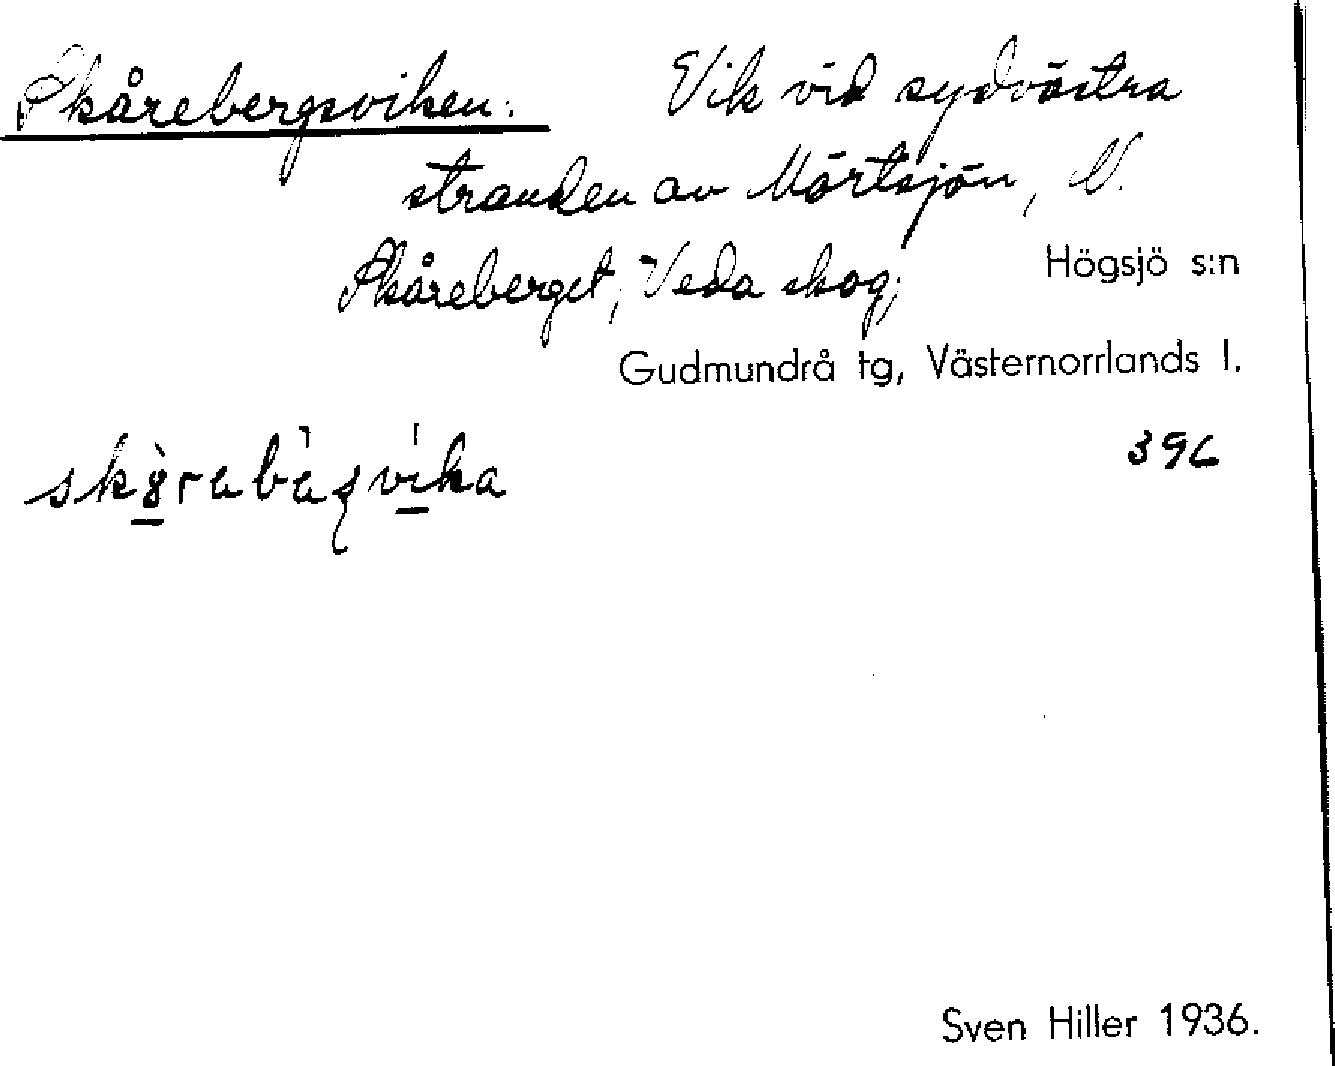 Skårebergsviken. Vik vid sydvästra
stranden av Mörtsjön, V.
Skåreberget, Veda skog,
Högsjö s:n
Gudmundrå tg, Västernorrlands l.
396
Sven Hiller 1936.